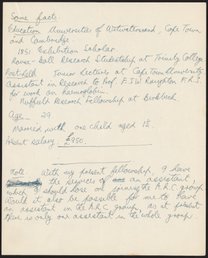 Some facts
Education Universities of Witwatersrand, Cape Town
and Cambridge
1851 Exhibition Scholar
Rouse-Ball Research Studentship at Trinity College
Posts held Junior Lecturer at Cape Town University
Assistant in Research to Prof. F.J.W. Roughton F.R.S.
for work on haemoglobin.
Nuffield Research Fellowship at Birkbeck
Age 29
Married with one child aged 1½.
Present salary £950.
Note. With my present fellowship, I have
the services of an assistant,
which I should lose on joining the A.R.C. group.
Would it also be possible for me to have
an assistant in the A.R.C. group. At present
there is only one assistant in the whole group